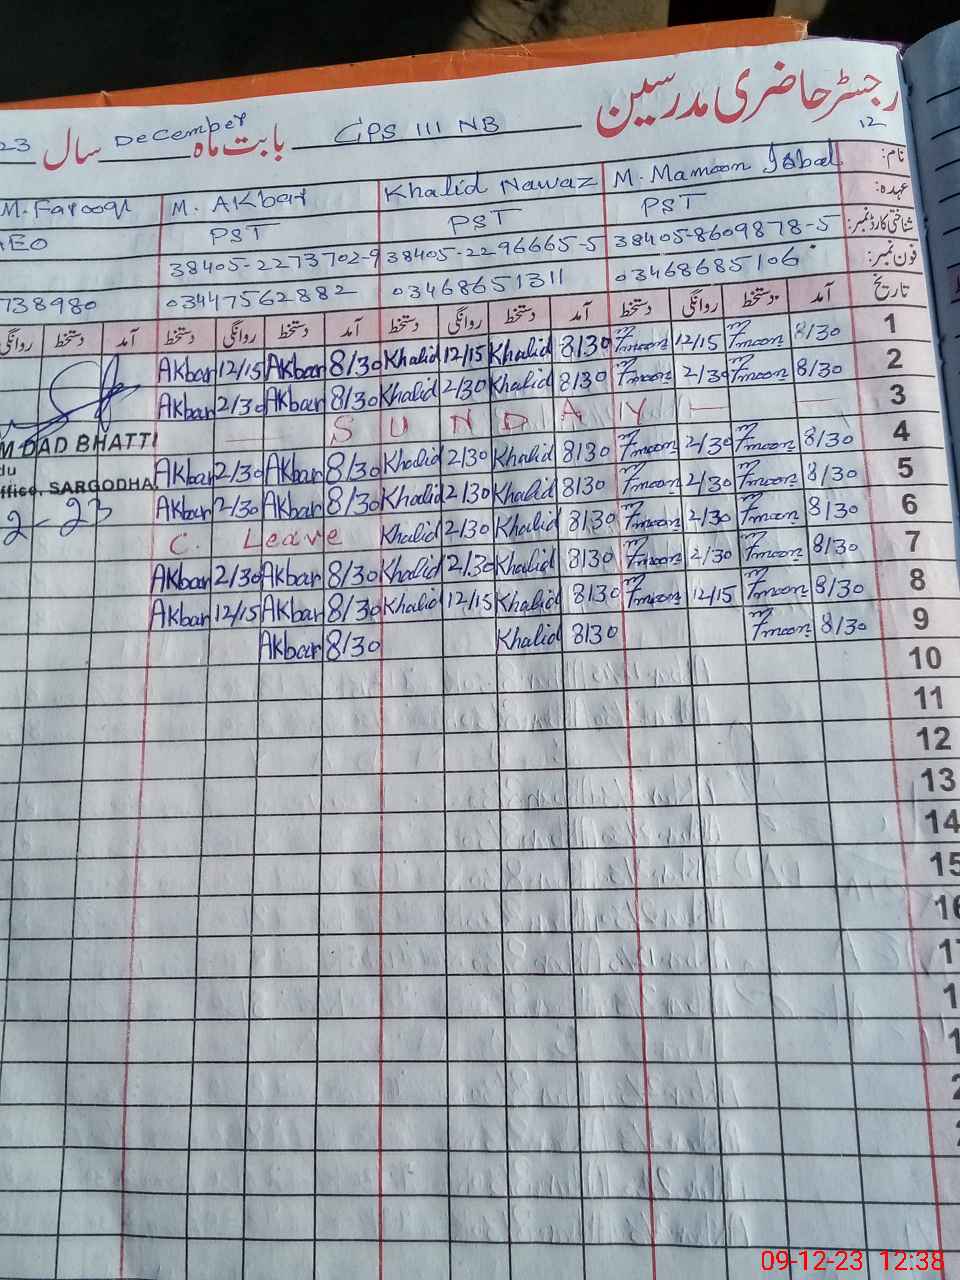 رجسٹر حاضری مدرسین
GPS 111 NB بابت ماہ December سال 23
12
نام: M. Mamoon Iqbal Khalid Nawaz M. Akbar M. Farooq
عہدہ: PST PST PST AEO
شناختی کارڈ نمبر: 38405-8609878-5 38405-2296665-5 38405-2273702-9
فون نمبر: 03468685106 03468651311 03447562882 738980
تاریخ آمد دستخط روانگی دستخط آمد دستخط روانگی دستخط آمد دستخط روانگی دستخط آمد دستخط روانگی
Akbar 12/15 Akbar 8/30 Khalid 12/15 Khalid 8/30 12/15 8/30 1
Akbar 2/30 Akbar 8/30 Khalid 2/30 Khalid 8/30 2/30 8/30 2
S U N D A Y 3
MDAD BHATTI
Akbar 2/30 Akbar 8/30 Khalid 2/30 Khalid 8/30 2/30 8/30 4
du
ffice, SARGODHA
Akbar 2/30 Akbar 8/30 Khalid 2/30 Khalid 8/30 2/30 8/30 5
2-23
C. Leave Khalid 2/30 Khalid 8/30 2/30 8/30 6
Akbar 2/30 Akbar 8/30 Khalid 2/30 Khalid 8/30 2/30 8/30 7
Akbar 12/15 Akbar 8/30 Khalid 12/15 Khalid 8/30 12/15 8/30 8
Akbar 8/30 Khalid 8/30 8/30 9
10
11
12
13
14
15
16
1
1
1
2
09-12-23 12:38